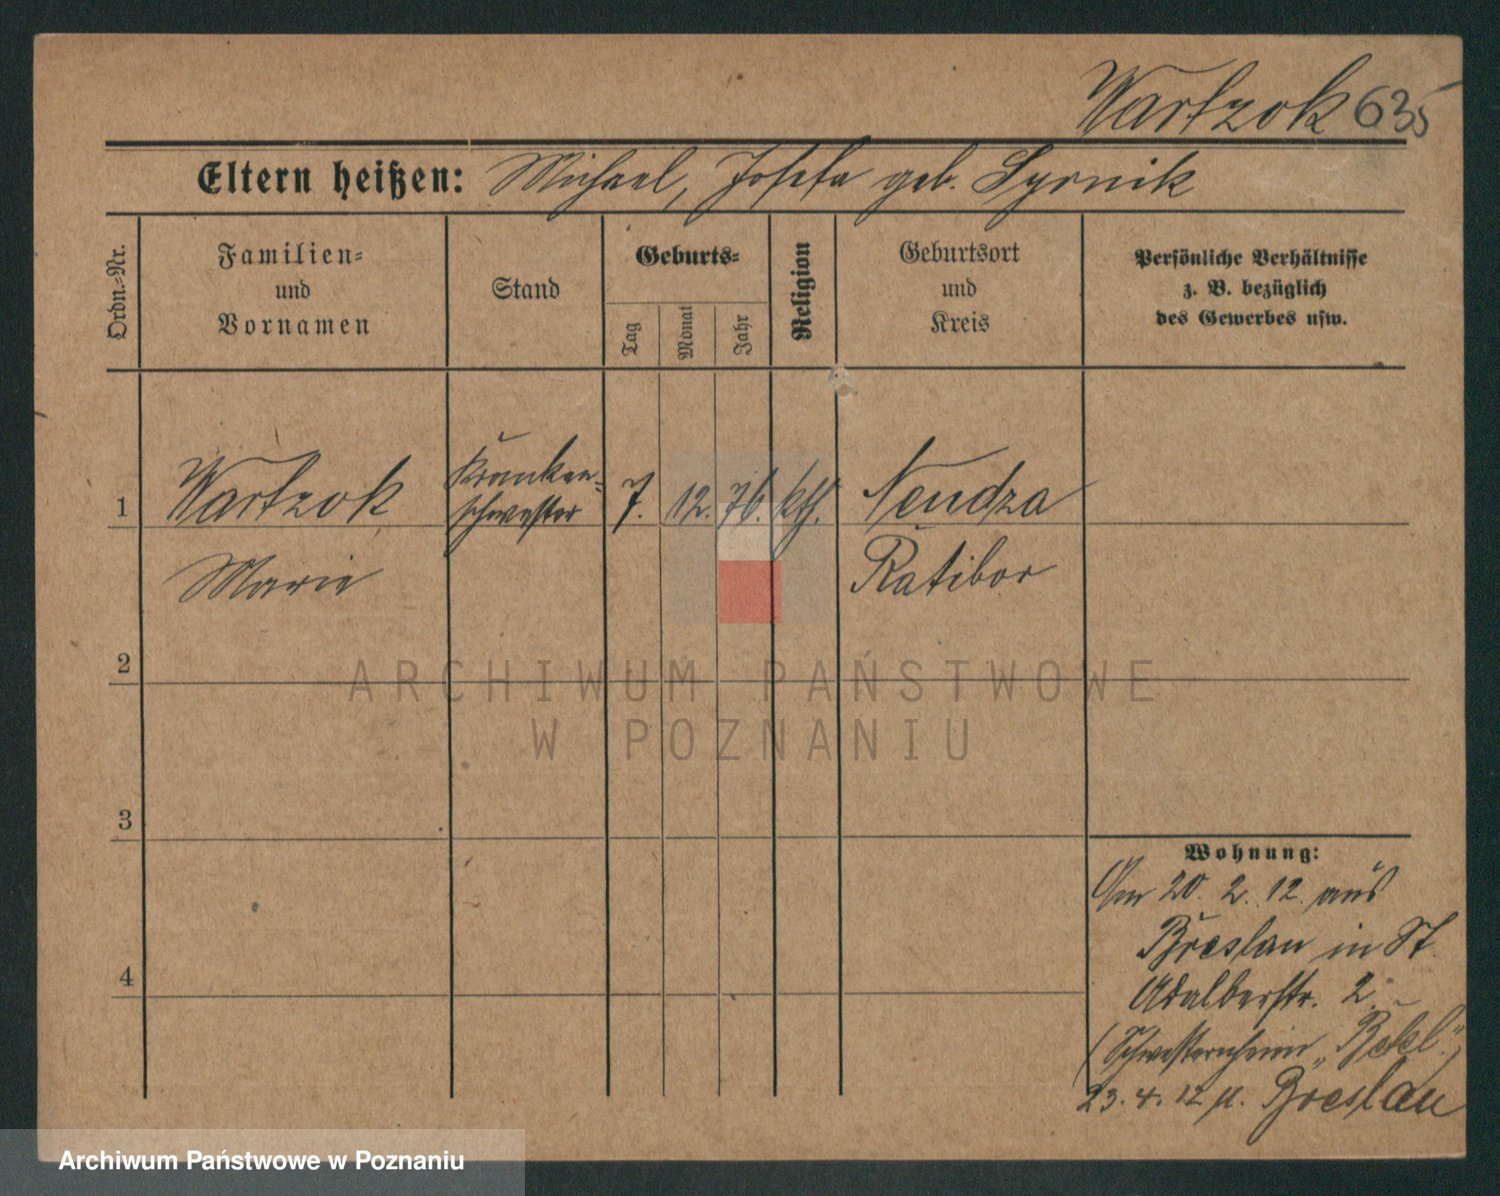 Wartzok 635
Eltern heißen: Michael, Josefa geb. Syrnik
Ordn.-Nr.
Familien-
und
Vornamen
Stand
Geburts-
Tag
Monat
Jahr
Religion
Geburtsort
und
Kreis
Persönliche Verhältnisse
z. B. bezüglich
des Gewerbes usw.
1 Wartzok
Kranken-
schwester
7. 12. 76. kth. Nendza
Marie
Ratibor
2
ARCHIWUM PAŃSTWOWE
W POZNANIU
3
Wohnung:
Am 20. 2. 12. aus
Breslau in St.
4
Adalbertstr. 2.
(Schwesternheim
23. 4. 12 Breslau
Archiwum Państwowe w Poznaniu